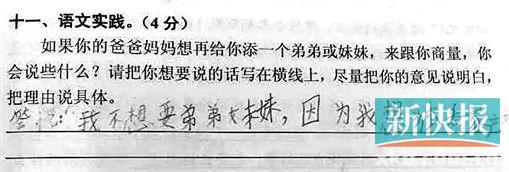 十一、语文实践。（4分）
如果你的爸爸妈妈想再给你添一个弟弟或妹妹，来跟你商量，你
会说些什么？请把你想要说的话写在横线上，尽量把你的意见说明白，
把理由说具体。
答：我不想要弟弟妹妹，因为我
新快报